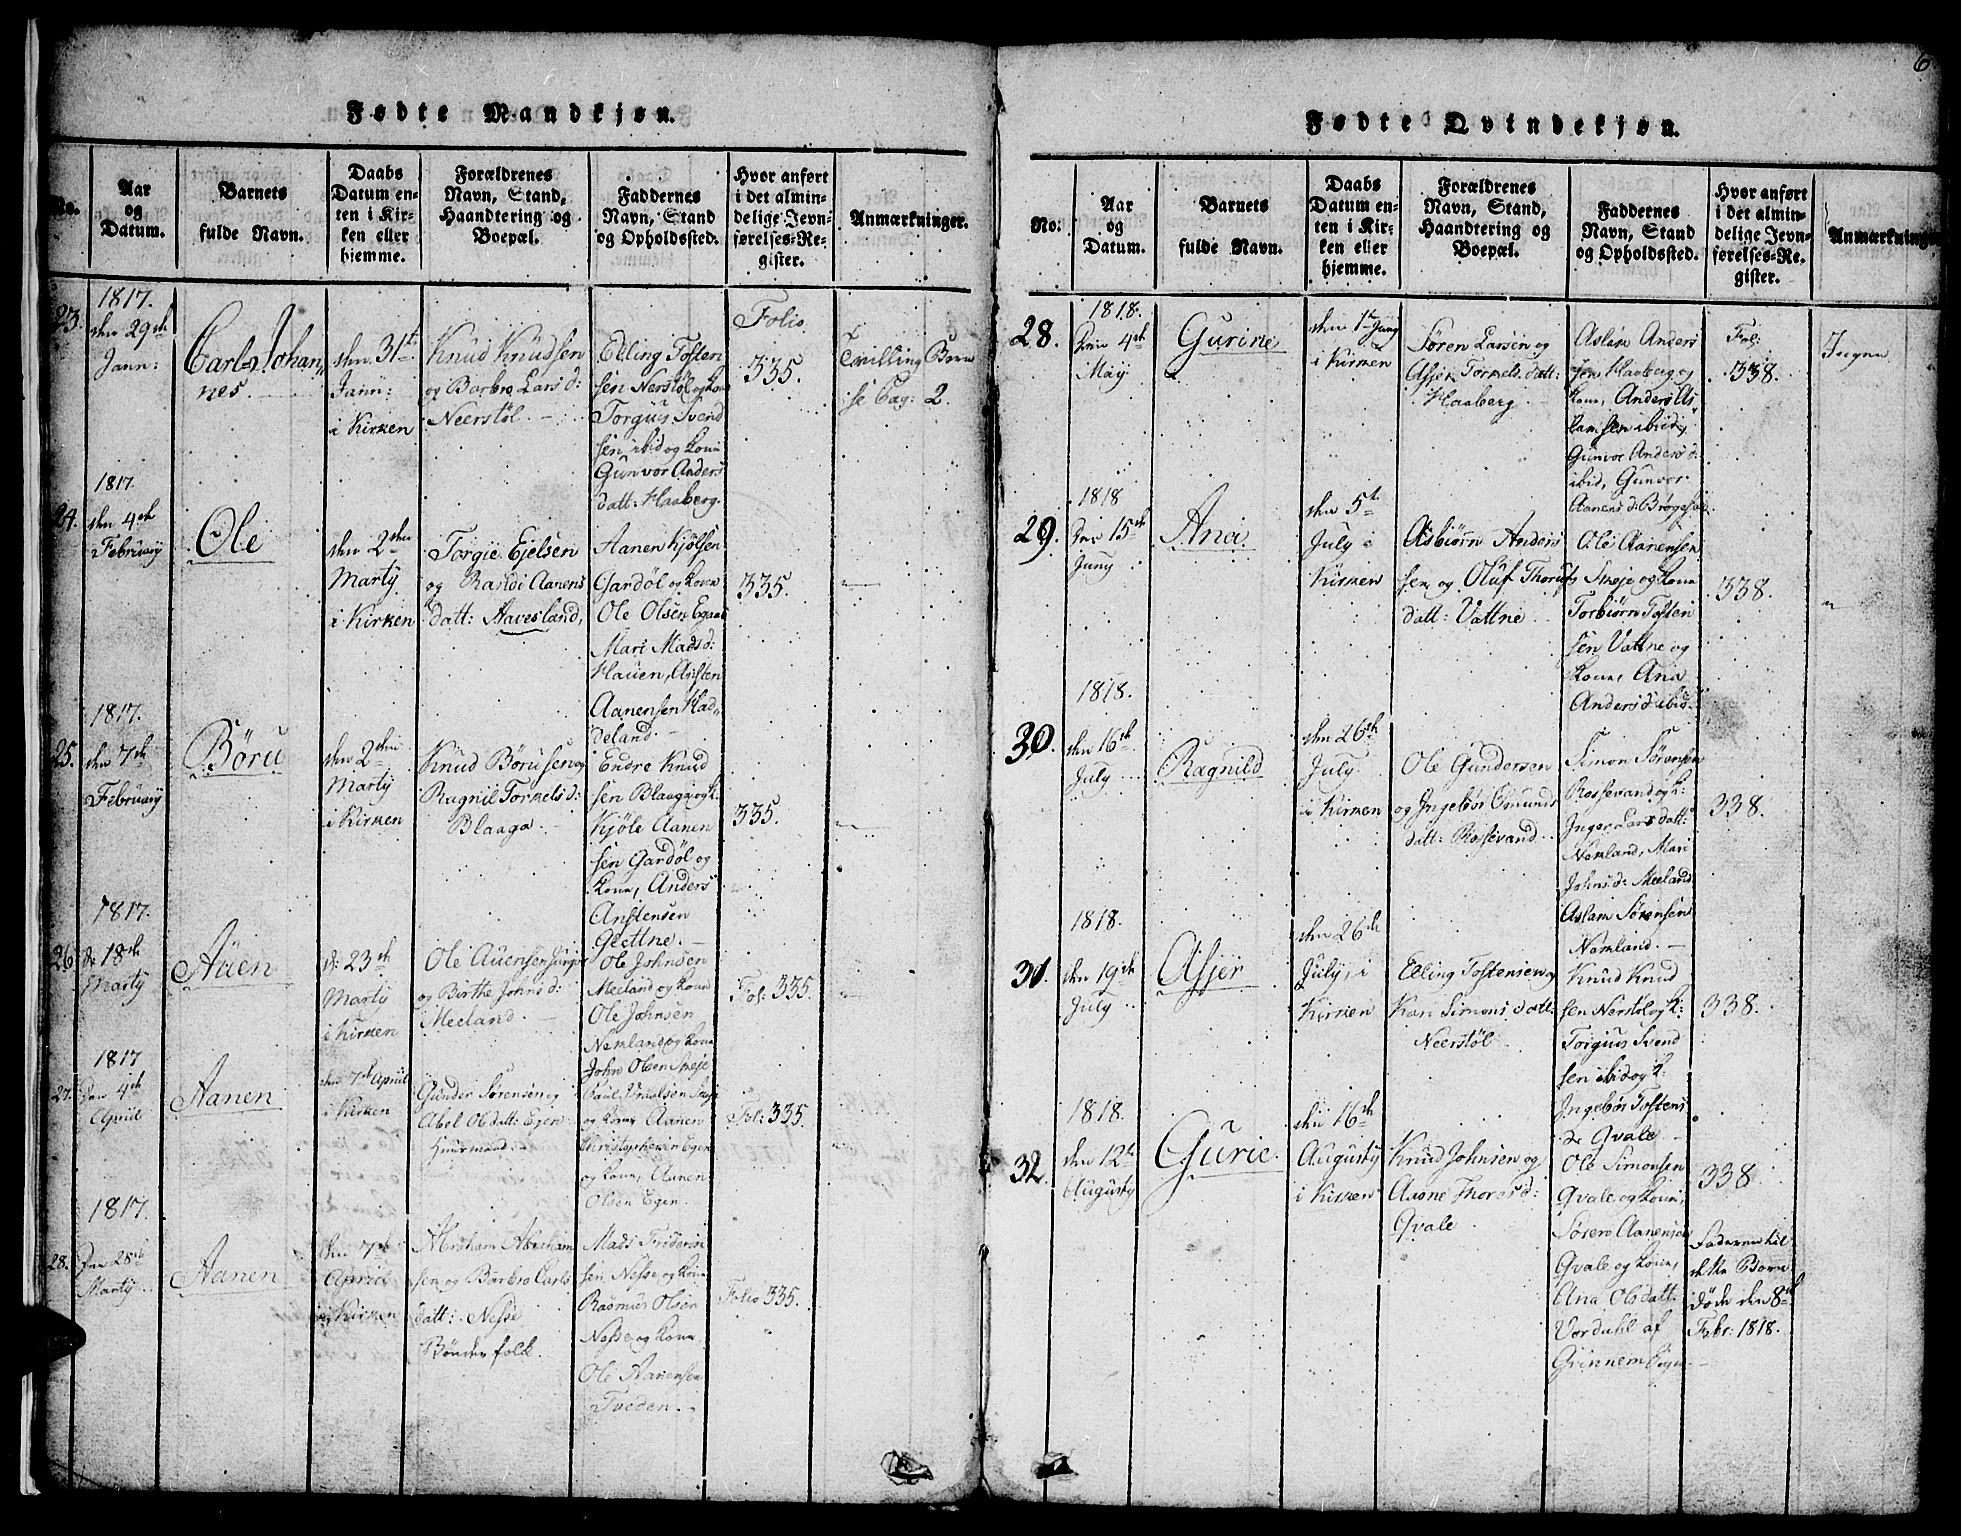 6
Fødte Mandkjøn.
No.
Aar
og
Datum.
Barnets
fulde Navn.
Daabs
Datum en-
ten i Kir-
ken eller
hjemme.
Forældrenes
Navn, Stand,
Haandtering og
Boepæl.
Faddernes
Navn, Stand
og Opholdssted.
Hvor anført
i det almin-
delige Jevn-
førelses-Re-
gister.
Anmærkninger.
23.
1817.
den 29de
Jann:
Carls Johan
nes.
den 31te
Jann:
i Kirken
Knud Knudsen
og Barbro Lars d:
Neerstøl
Elling Tosten
sen Nerstøl og Kone
Torgius Svend
sen ibid og Kone
Gunvor Anders
datt: Haaberg.
Folio
335.
Tvilling Born
se Pag: 2.
24.
1817.
den 4de
February
Ole
den 2den
Marty
i Kirken
Torgie Ejelsen
og Randi Aanens
datt: Aavesland,
Aanen Kjölsen
Gardöl og Kone
Ole Olsen Egen
Mari Mads d:
Hauen, Austen
Aanensen Had„
deland.
335.
25.
1817.
den 7de
February
Böru
den 2den
Marty
i Kirken
Knud Börusen og
Ragnil Torkels d:
Blaaga.
Endre Knud
sen Blaaga og K:
Kjöle Aanen
sen Gardöl og
Kone, Anders
Anstensen
Glettne.
335.
26.
1817.
d: 18de
Marty
Auen
d: 23de
Marty
i Kirken
Ole Auensen
og Birthe Johns d:
Meeland.
Ole Johnsen
Meeland og Kone
Ole Johnsen
Nomland og Kone
John Olsen Skeje
Fol: 335.
27.
1817
den 4de
April
Aanen
den 7de April
i Kirken
Gunder Sörensen og
Abel Ols datt: Egen
Huusmand:
og Kone Aanen
Christophersen Egen
og Kone, Aanen
Olsen Egen.
Fol: 335.
28.
1817.
Marty
Aanen
den 7de
April
i Kirken
Abraham Abraham
sen og Barbro Carls
datt: Nesse
Bönder folk.
Mads
sen, Nesse og Kone
Rasmus Olsen
Nesse og Kone,
Ole Aanensen
Tveden.
Folio 335.
Fødte Qvindekjøn.
No:
Aar
og
Datum.
Barnets
fulde Navn.
Daabs
Datum en-
ten i Kir-
ken eller
hjemme.
Forældrenes
Navn, Stand,
Haandtering og
Boepæl.
Faddernes
Navn, Stand
og Opholdssted.
Hvor anført
i det almin-
delige Jevn-
førelses-Re-
gister.
Anmærkninger
28.
1818.
Den 4de
May
Gurine
den 1te Juny
i Kirken
Sören Larsen og
Asjer Torkels datt:
Haaberg.
Aslam Anders
sen Haaberg og
Kone, Anders As„
lamsen ibid,
Gunvor Anders d:
ibid, Gunvor
Aanens d:
Fol:
338.
Ingen
29.
1818
Den 15de
Juny
Ana
den 5te
July i
Kirken
Asbiörn Anders
sen og Oluf Thorufs
datt: Vattne
Ole Aanensen
Skeje og Kone
Torbiörn Tosten
sen Vattne og
Kone, Ana
Anders d: ibid.
338.
30.
1818.
den 16de
July
Ragnild
den 26de
July
i Kirken
Ole Gundersen
og Ingebör Osmunds
datt: Rossevand
Simon Sörensen
Rossevand og K:
Inger Lars datt:
Nomland, Mari
Johns d: Meeland
Aslam Sörensen
Nomland.
338.
31.
1818.
den 19de
July
Asjer
den 26de
July, i
Kirken
Elling Tostensen og
Kari Simons datt.
Neerstöl
Knud Knud
sen Nerstöl og K:
Torgius Svend
sen ibid og K:
Ingebör Tostens
d: Qvale
338.
32.
1818.
den 12te
Augusty
Gurie.
den 16de
Augusty
i Kirken
Knud Johnsen og
Aasne Thores d:
Qvale
Ole Simonsen
Qvale og Kone,
Sören Aanensen
Qvale og Kone,
Ana Ols datt.
Vordahl af
338
Faderen til
dette Born
döde den 8de
Febr: 1818.